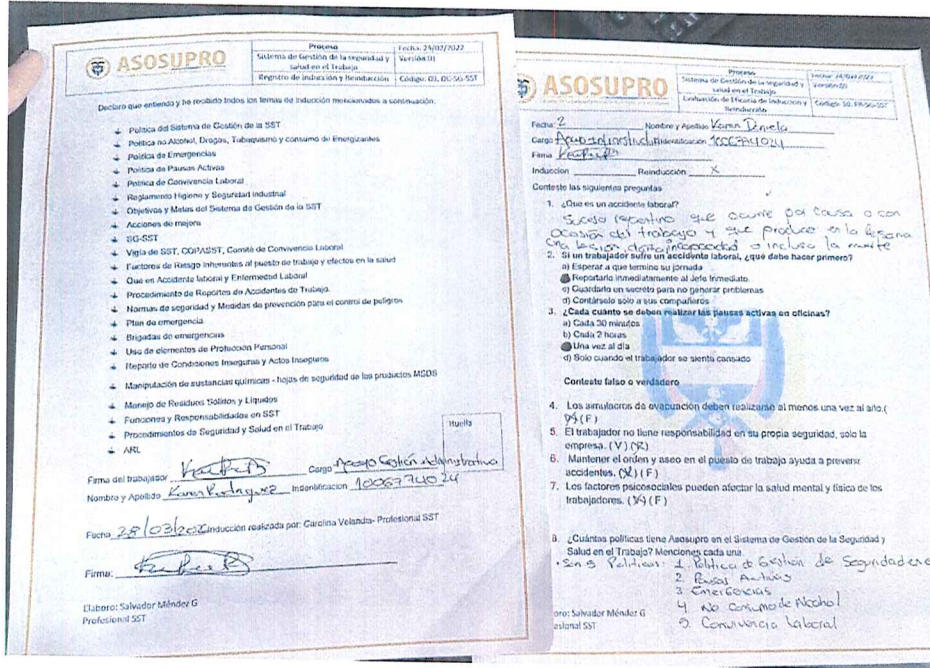 ASOSUPRO
Proceso
Sistema de Gestión de la seguridad y
salud en el Trabajo
Registro de Inducción y Reinducción
Fecha: 24/02/2022
Versión:01
Código: 03. DC-SG-SST
Declaro que entiendo y he recibido todos los temas de inducción mencionados a continuación.
Política del Sistema de Gestión de la SST
Política no Alcohol, Drogas, Tabaquismo y consumo de Energizantes
Política de Emergencias
Política de Pausas Activas
Política de Convivencia Laboral
Reglamento Higiene y Seguridad Industrial
Objetivos y Metas del Sistema de Gestión de la SST
Acciones de mejora
SG-SST
Vigía de SST, COPASST, Comité de Convivencia Laboral
Factores de Riesgo inherentes al puesto de trabajo y efectos en la salud
Que en Accidente laboral y Enfermedad Laboral
Procedimiento de Reportes de Accidentes de Trabajo.
Normas de seguridad y Medidas de prevención para el control de peligros
Plan de emergencia
Brigadas de emergencias
Uso de elementos de Protección Personal
Reporte de Condiciones Inseguras y Actos Inseguros
Manipulación de sustancias químicas - hojas de seguridad de los productos MSDS
Manejo de Residuos Sólidos y Líquidos
Funciones y Responsabilidades en SST
Procedimientos de Seguridad y Salud en el Trabajo
ARL
Huella
Firma del trabajador Cargo Apoyo Gestión Administrativa
Nombre y Apellido Karen Rodriguez Indentificacion 1006774024
Fecha 28/03/202 Inducción realizada por: Carolina Velandia- Profesional SST
Firma:
Elaboro: Salvador Méndez G
Profesional SST
ASOSUPRO
Proceso
Sistema de Gestión de la seguridad y
salud en el Trabajo
Evaluación de Eficacia de Inducción y
Reinducción
Versión:01
Código: 50. FR-SG-SST
Fecha 2 Nombre y Apellido Karen Daniela
Cargo Identificación 1006774024
Firma
Induccion Reinducción X
Conteste las siguientes preguntas
1. ¿Que es un accidente laboral?
Suceso repentino que ocurre por causa o con
ocasión del trabajo y que produce en la persona
una lesion, incapacidad o incluso la muerte
2. Si un trabajador sufre un accidente laboral, ¿qué debe hacer primero?
a) Esperar a que termine su jornada
Reportarlo inmediatamente al Jefe Inmediato
c) Guardarlo en secreto para no generar problemas
d) Contárselo solo a sus compañeros
3. ¿Cada cuánto se deben realizar las pausas activas en oficinas?
a) Cada 30 minutos
b) Cada 2 horas
Una vez al día
d) Solo cuando el trabajador se sienta cansado
Conteste falso o verdadero
4. Los simulacros de evacuación deben realizarse al menos una vez al año.(
V) (F)
5. El trabajador no tiene responsabilidad en su propia seguridad, solo la
empresa. (V) (F)
6. Mantener el orden y aseo en el puesto de trabajo ayuda a prevenir
accidentes. (V) (F)
7. Los factores psicosociales pueden afectar la salud mental y física de los
trabajadores. (V) (F)
8. ¿Cuántas políticas tiene Asosupro en el Sistema de Gestión de la Seguridad y
Salud en el Trabajo? Menciones cada una.
• Son 5 Politicas: 1. Politica de Gestion de Seguridad
2. Pausas Activas
3 Emergencias
4 No Consumo de Alcohol
5. Convivencia Laboral
oro: Salvador Méndez G
esional SST